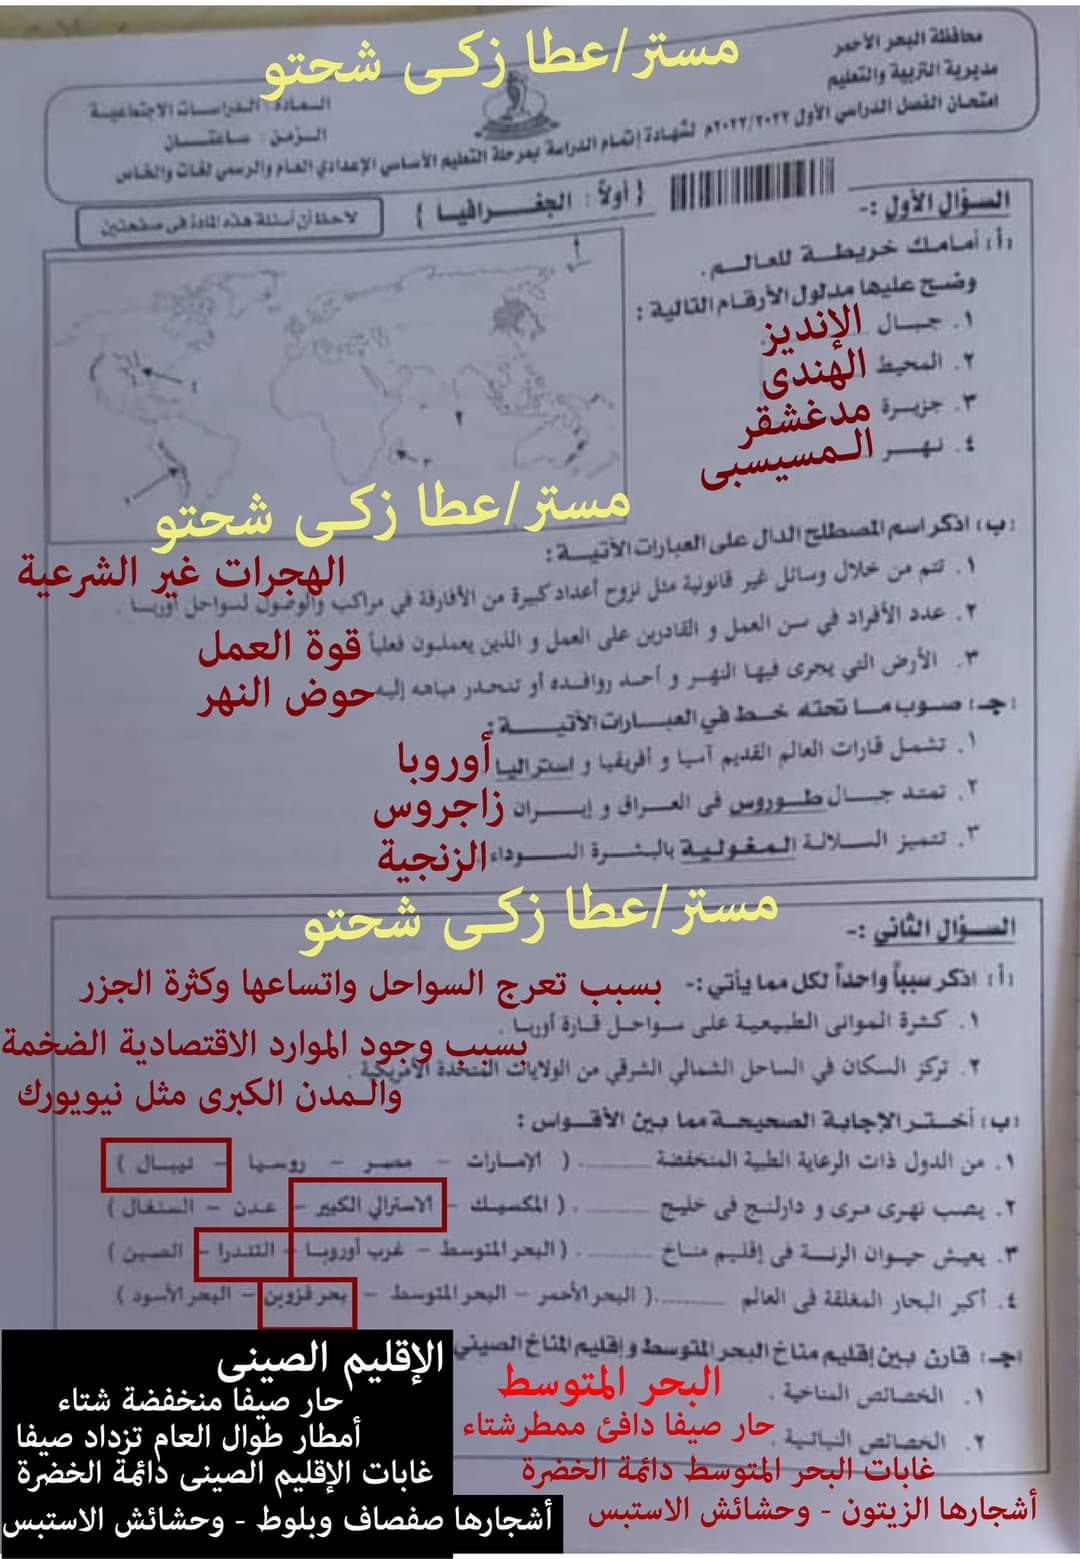 مستر/عطا زكى شحتو
محافظة البحر الأحمر
مديرية التربية والتعليم
امتحان الفصل الدراسي الأول ٢٠٢٢/٢٠٢٣م لشهادة إتمام الدراسة بمرحلة التعليم الأساسي الإعدادي العام والرسمي لغات والخاص
المادة : الدراسات الاجتماعية
الزمن : ساعتان
{ أولاً : الجغرافيا }
لاحظ أن أسئلة هذه المادة فى صفحتين
السؤال الأول :-
(أ) أمامك خريطة للعالم .
وضح عليها مدلول الأرقام التالية :
١. جبال الإنديز
٢. المحيط الهندى
٣. جزيرة مدغشقر
٤. نهر المسيسبى
مستر/عطا زكى شحتو
(ب) اذكر اسم المصطلح الدال على العبارات الأتية :
الهجرات غير الشرعية
١. تتم من خلال وسائل غير قانونية مثل نزوح أعداد كبيرة من الأفارقة في مراكب والوصول لسواحل أوربا .
٢. عدد الأفراد في سن العمل و القادرين على العمل و الذين يعملون فعلياً قوة العمل
٣. الأرض التي يجرى فيها النهر و أحد روافده أو تنحدر مياهه إليه حوض النهر
(جـ) صوب ما تحته خط في العبارات الأتية :
١. تشمل قارات العالم القديم آسيا و أفريقيا و استراليا أوروبا
٢. تمتد جبال طوروس فى العراق و إيران زاجروس
٣. تتميز السلالة المغولية بالبشرة السوداء الزنجية
مستر/عطا زكى شحتو
السؤال الثاني :-
(أ) اذكر سبباً واحداً لكل مما يأتي :- بسبب تعرج السواحل واتساعها وكثرة الجزر
١. كثرة الموانى الطبيعية على سواحل قارة أوربا .
بسبب وجود الموارد الاقتصادية الضخمة
٢. تركز السكان في الساحل الشمالي الشرقي من الولايات المتحدة الأمريكية .
والمدن الكبرى مثل نيويورك
(ب) أختر الإجابة الصحيحة مما بين الأقواس :
١. من الدول ذات الرعاية الطبية المنخفضة ......... . ( الإمارات - مصر - روسيا - نيبال )
٢. يصب نهرى مرى و دارلنج فى خليج ......... . ( المكسيك - الاسترالي الكبير - عدن - السنغال )
٣. يعيش حيوان الرنة فى إقليم مناخ ......... . ( البحر المتوسط - غرب أوروبا - التندرا - الصين )
٤. أكبر البحار المغلقة فى العالم ......... . ( البحر الأحمر - البحر المتوسط - بحر قزوين - البحر الأسود )
(جـ) قارن بين إقليم مناخ البحر المتوسط و إقليم المناخ الصيني
١. الخصائص المناخية .
٢. الخصائص النباتية .
البحر المتوسط
حار صيفا دافئ ممطر شتاء
غابات البحر المتوسط دائمة الخضرة
أشجارها الزيتون - وحشائش الاستبس
الإقليم الصينى
حار صيفا منخفضة شتاء
أمطار طوال العام تزداد صيفا
غابات الإقليم الصينى دائمة الخضرة
أشجارها صفصاف وبلوط - وحشائش الاستبس